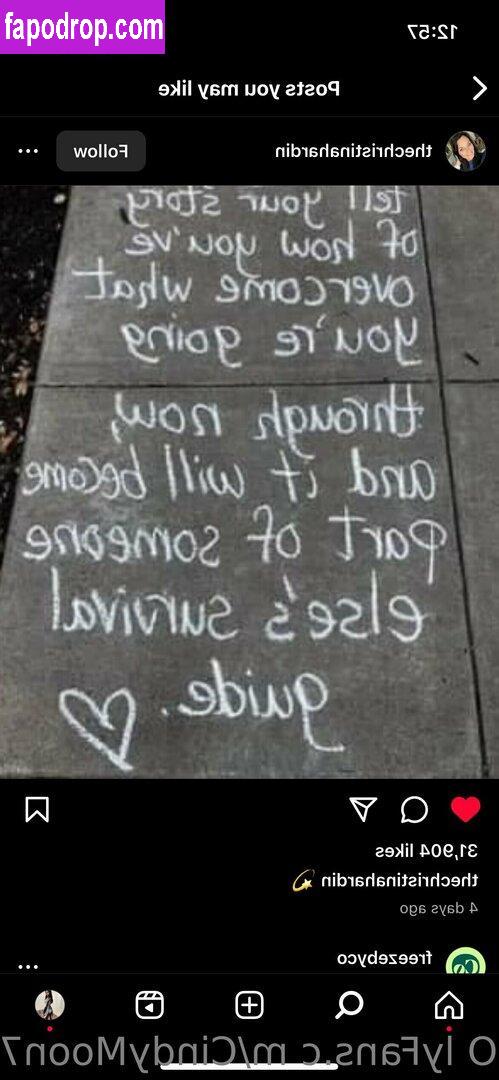 fapodrop.com
12:57
Posts you may like
thechristinahardin
Follow
tell your story
of how you've
overcome what
you're going
through now,
and it will become
part of someone
else's survival
guide.
31,904 likes
thechristinahardin
4 days ago
freezebyco
Co
O lyFans.c m/CindyMoon7